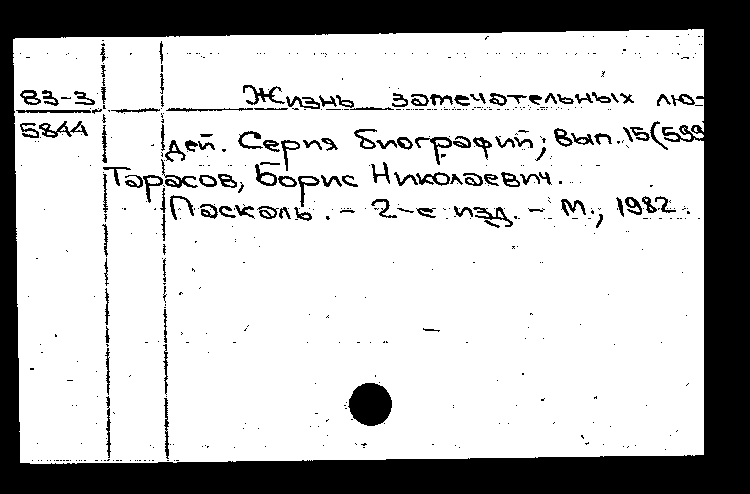 83-3 Жизнь замечательных лю-
5844 дей. Серия биографий; Вып. 15(599
Тарасов, Борис Николаевич.
Паскаль. - 2-е изд. - М., 1982.